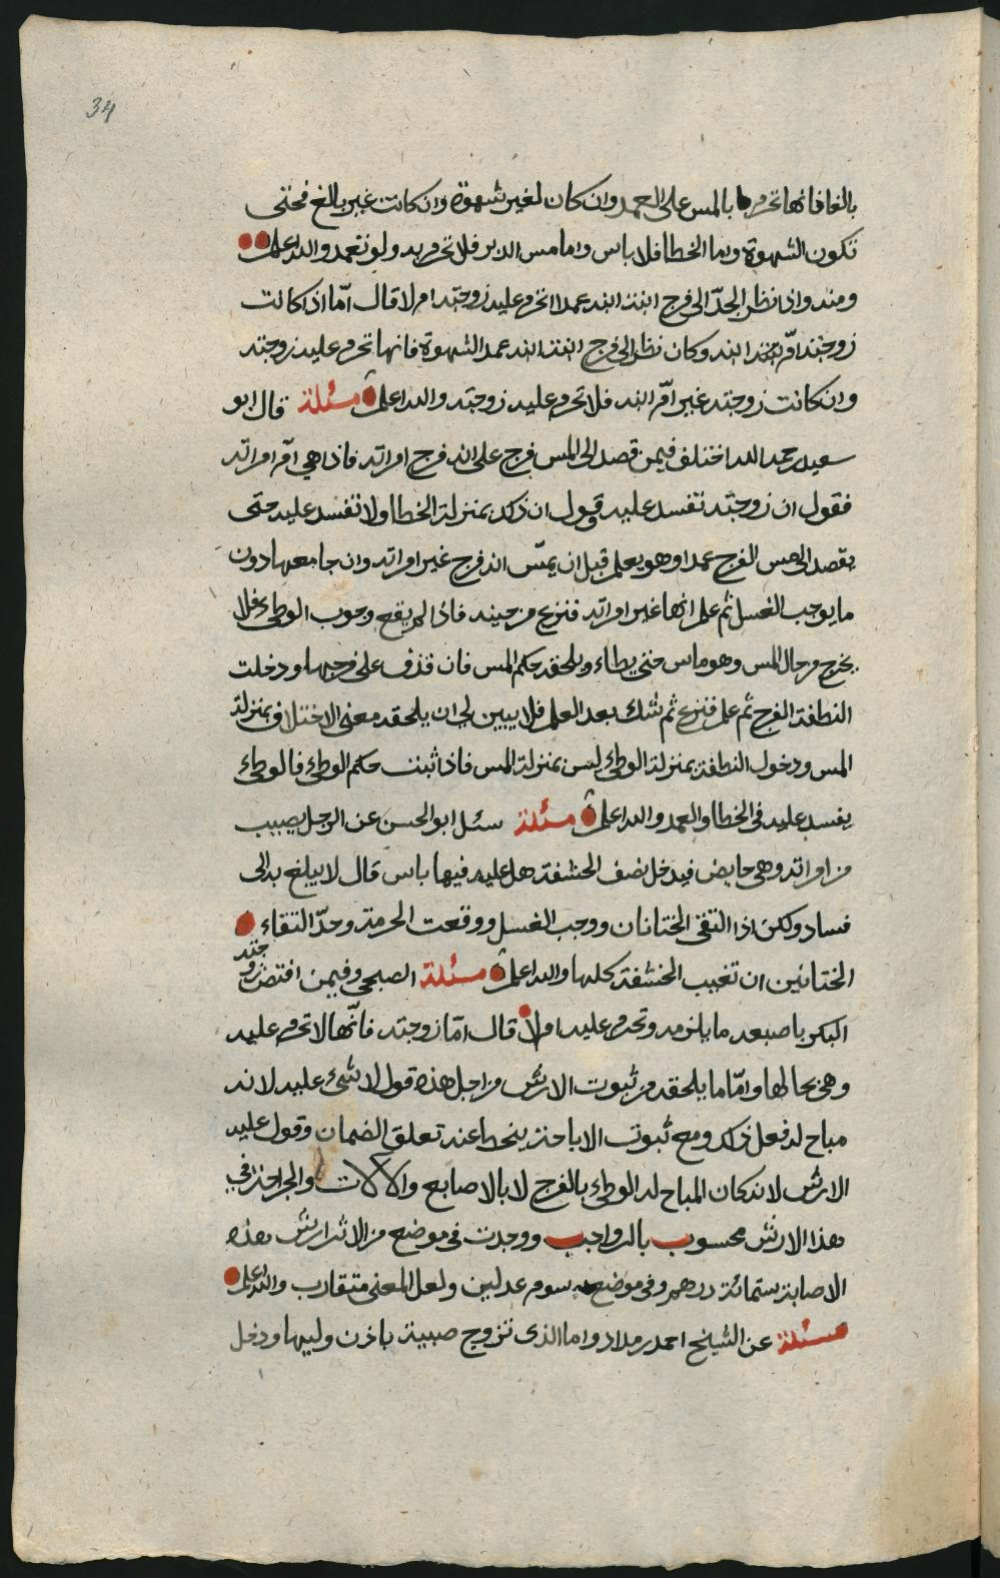 34
بالغا فانها تحرم بالمس على العمد وان كان لغير شهوة وان كانت غير بالغ فحتى
تكون الشهوة واما الخطا فلا باس واما مس الدبر فلا تحرم به ولو تعمد والله اعلم
ومنه واذا نظر الجدّ الى فرج ابنة ابنه عمدا اتحرم عليه زوجته ام لا قال امّا اذا كانت
زوجته امّ ابنه وكان نظر الى فرج ابنة ابنه عمد الشهوة فانها تحرم عليه زوجته
وان كانت زوجته غير امّ ابنه فلا تحرم عليه زوجته والله اعلم مسئلة قال ابو
سعيد رحمه الله اختلف فيمن قصد الى المس فرج على انه فرج امراته فاذا هي امّ امراته
فقول ان زوجته تفسد عليه وقول ان ذلك بمنزلة الخطا ولا تفسد عليه حتى
يقصد الى مس الفرج عمدا وهو يعلم قبل ان يمسّ انه فرج غير امراته وان جامعها دون
ما يوجب الغسل ثم علم انها غير امراته فنزع من حينه فاذا لم يقع وجوب الوطئ فلا
يخرج من حال المس وهو ماس حتى يطاء ويلحقه حكم المس فان قذف على فرجها ودخلت
النطفة الفرج ثم علم فنزع ثم شك بعد العلم فلا يبين لي ان يلحقه معنى الاختلاف بمنزلة
المس ودخول النطفة بمنزلة الوطئ ليس بمنزلة المس فاذا ثبت حكم الوطئ فالوطئ
يفسد عليه في الخطا والعمد والله اعلم مسئلة سئل ابو الحسن عن الرجل يصيب
من امراته وهي حايض فيدخل نصف الحشفة هل عليه فيها باس قال لا يبلغ به الى
فساد ولكن اذا التقى الختانان ووجب الغسل ووقعت الحرمة وحدّ التقاء
الختانين ان تغيب الحشفة كلها والله اعلم مسئلة الصبحي وفيمن افتض زوجته
البكر باصبعه ما يلزمه وتحرم عليه ام لا قال امّا زوجته فانّها لا تحرم عليه
وهي بحالها وامّا ما يلحقه من ثبوت الارش من اجل هذه قول لا شئ عليه لانه
مباح له فعل ذلك ومع ثبوت الاباحة ينحط عنه تعلق الضمان وقول عليه
الارش لانه كان المباح له الوطئ بالفرج لا بالاصابع والآلات والجراحة في
هذا الارش محسوب بالرواجب ووجدت في موضع من الاثر ارش هذه
الاصابة ستمائة درهم وفي موضع سوم عدلين ولعل المعنى متقارب والله اعلم
مسئلة عن الشيخ احمد بن مداد واما الذى تزوج صبية باذن وليها ودخل